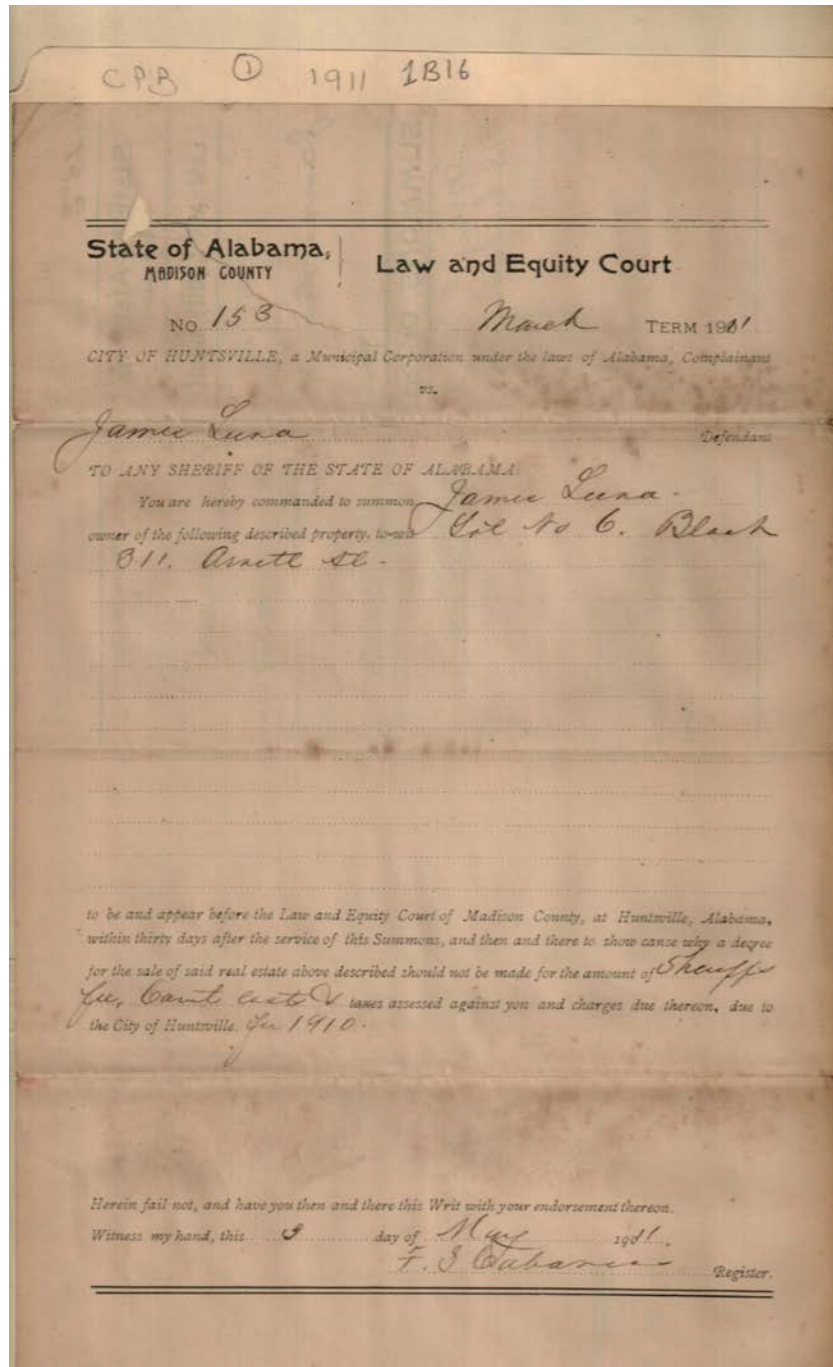 CPB ① 1911 1B16
State of Alabama, Law and Equity Court
MADISON COUNTY
No. 153 March TERM 1911
CITY OF HUNTSVILLE, a Municipal Corporation under the laws of Alabama, Complainant
vs.
James Luna Defendant
TO ANY SHERIFF OF THE STATE OF ALABAMA:
You are hereby commanded to summon James Luna.
owner of the following described property, to-wit Lot No 6. Block
311. Arnett St.
to be and appear before the Law and Equity Court of Madison County, at Huntsville, Alabama,
within thirty days after the service of this Summons, and then and there to show cause why a degree
for the sale of said real estate above described should not be made for the amount of Sheriffs
fee, Court cost & taxes assessed against you and charges due thereon, due to
the City of Huntsville. for 1910.
Herein fail not, and have you then and there this Writ with your endorsement thereon.
Witness my hand, this 3 day of May 1911.
F. I Cabaniss Register.